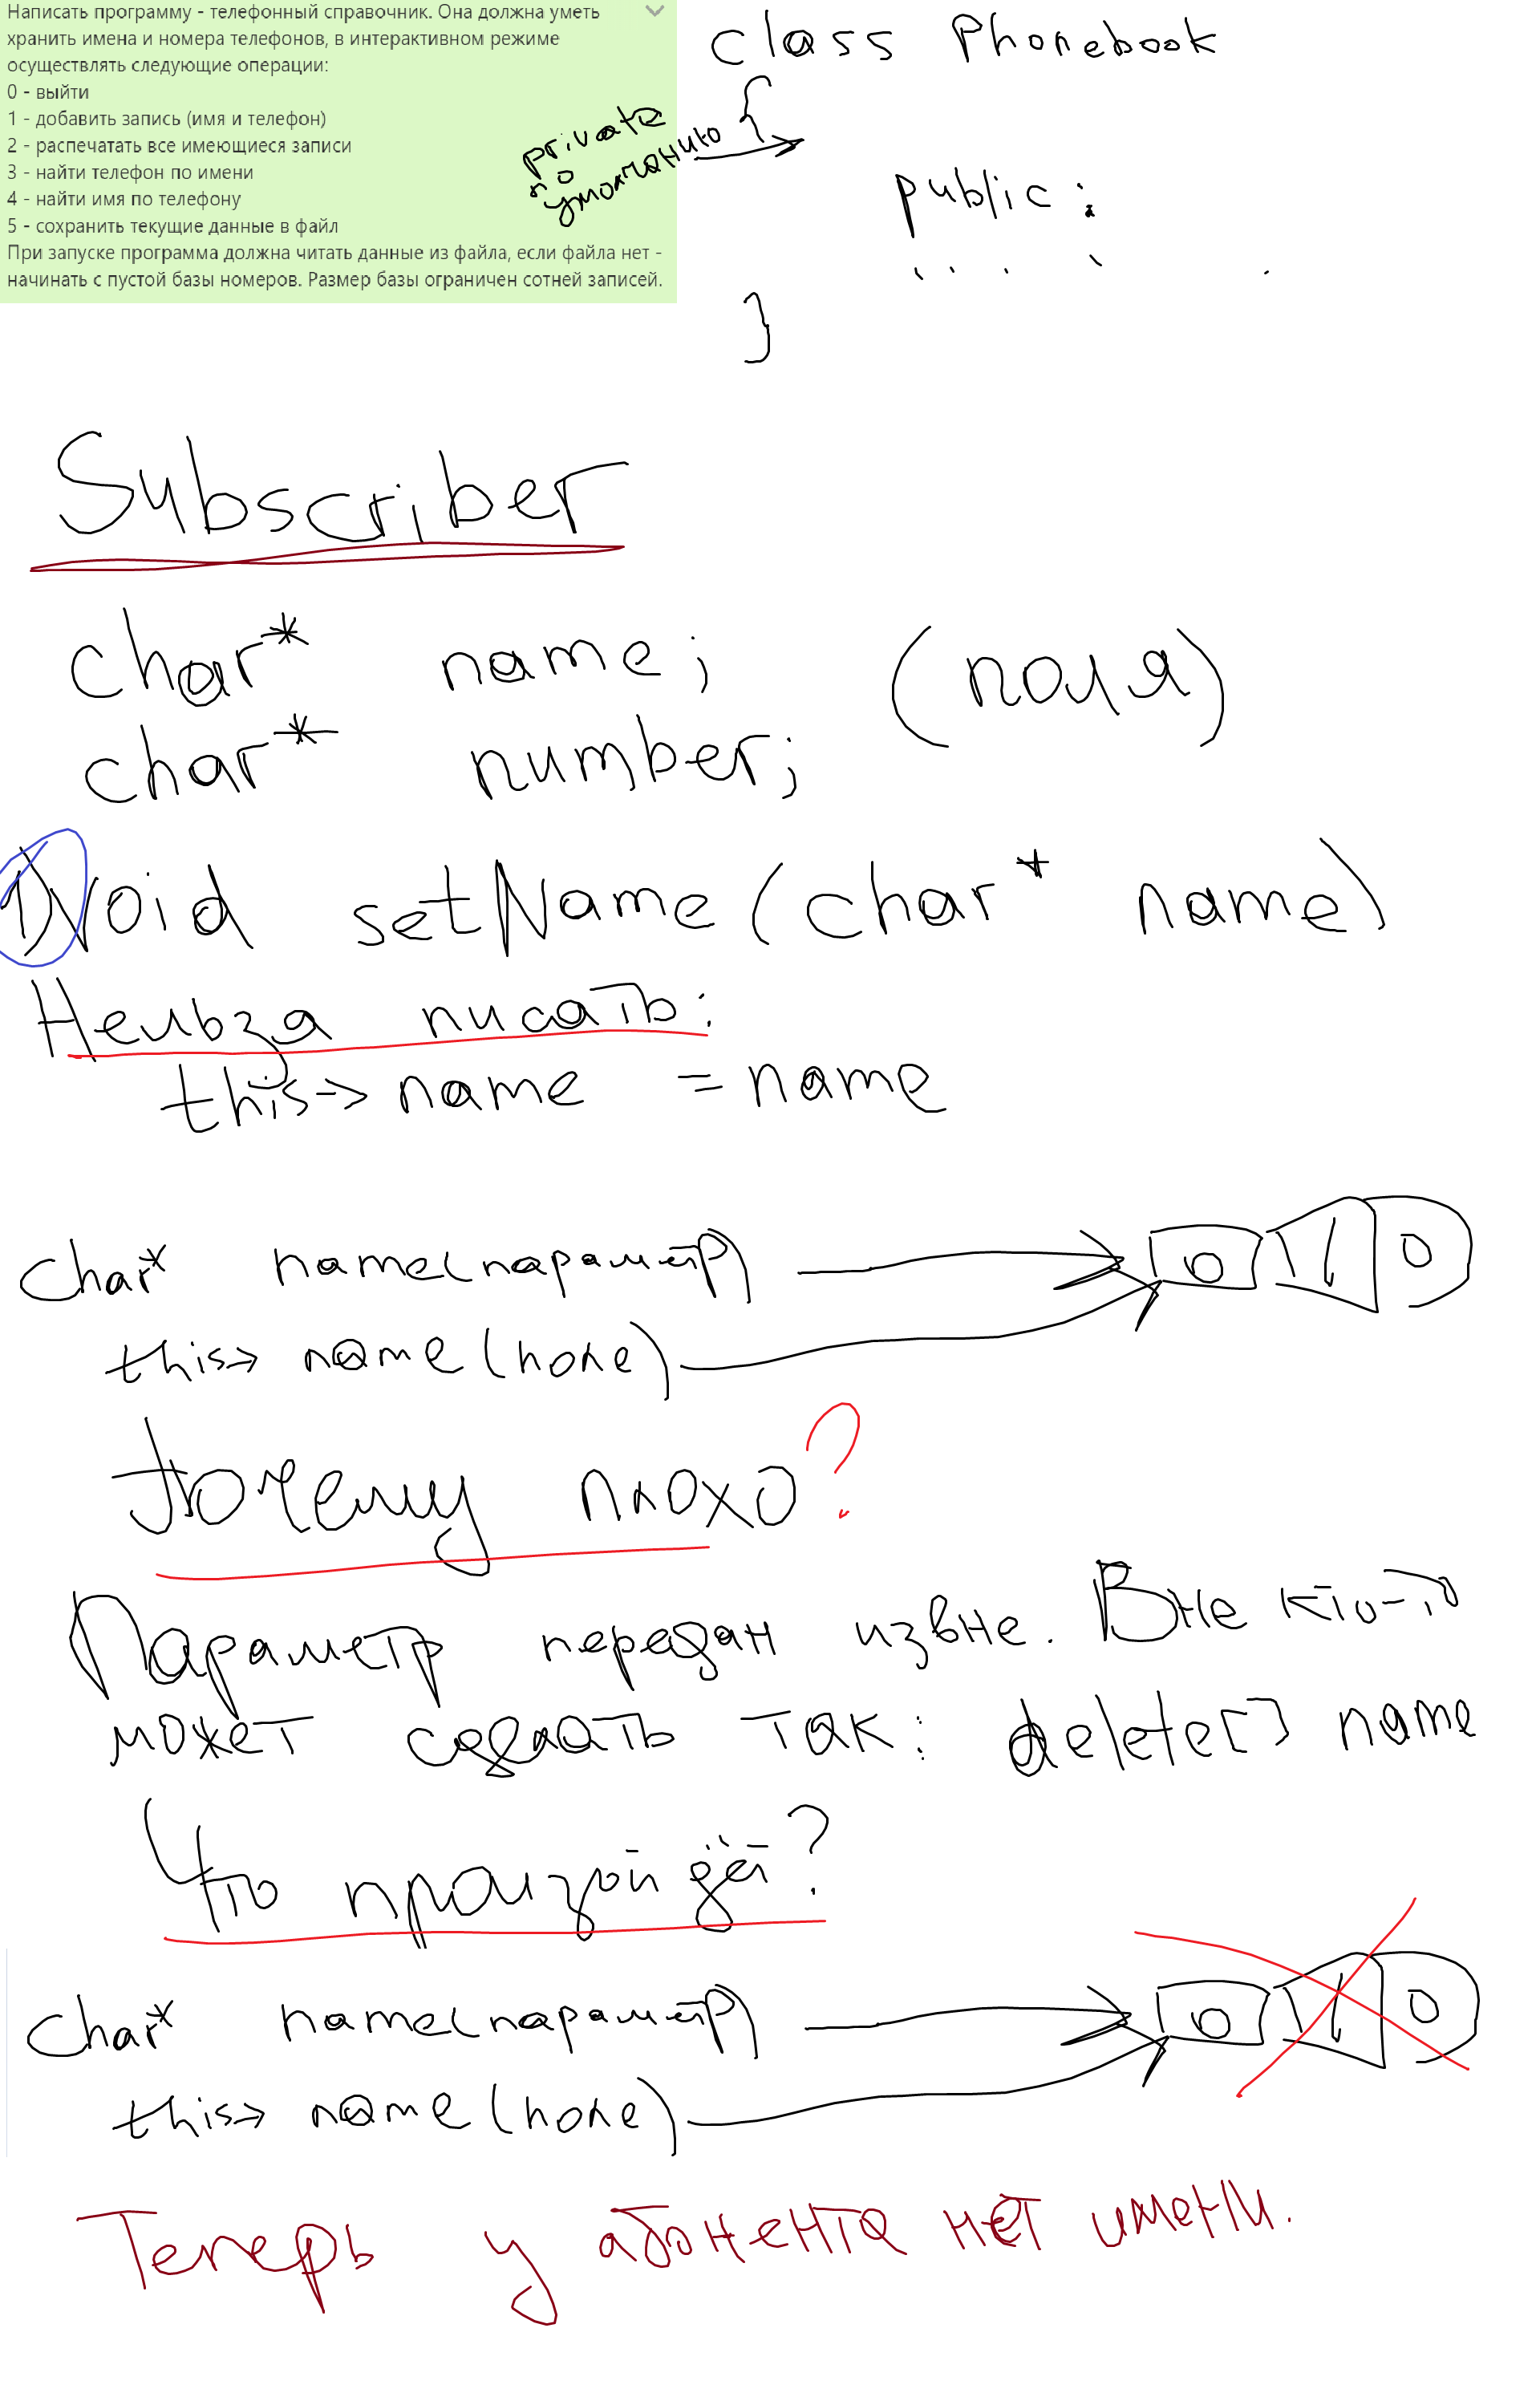 Написать программу - телефонный справочник. Она должна уметь
хранить имена и номера телефонов, в интерактивном режиме
осуществлять следующие операции:
0 - выйти
1 - добавить запись (имя и телефон)
2 - распечатать все имеющиеся записи
3 - найти телефон по имени
4 - найти имя по телефону
5 - сохранить текущие данные в файл
При запуске программа должна читать данные из файла, если файла нет -
начинать с пустой базы номеров. Размер базы ограничен сотней записей.
class Phonebook
{
private
по
умолчанию
public:
. . . . .
}
Subscriber
char* name; (поля)
char* number;
1) Void setName(char* name)
Нельзя писать:
this-> name = name
char* name(параметр) 0 1 0
this-> name (поле)
Почему плохо?
Параметр передан извне. Вне кто-то
может сделать так: delete[] name
Что произойдёт?
char* name(параметр) 0 1 0
this-> name (поле)
Теперь у абонента нет имени.